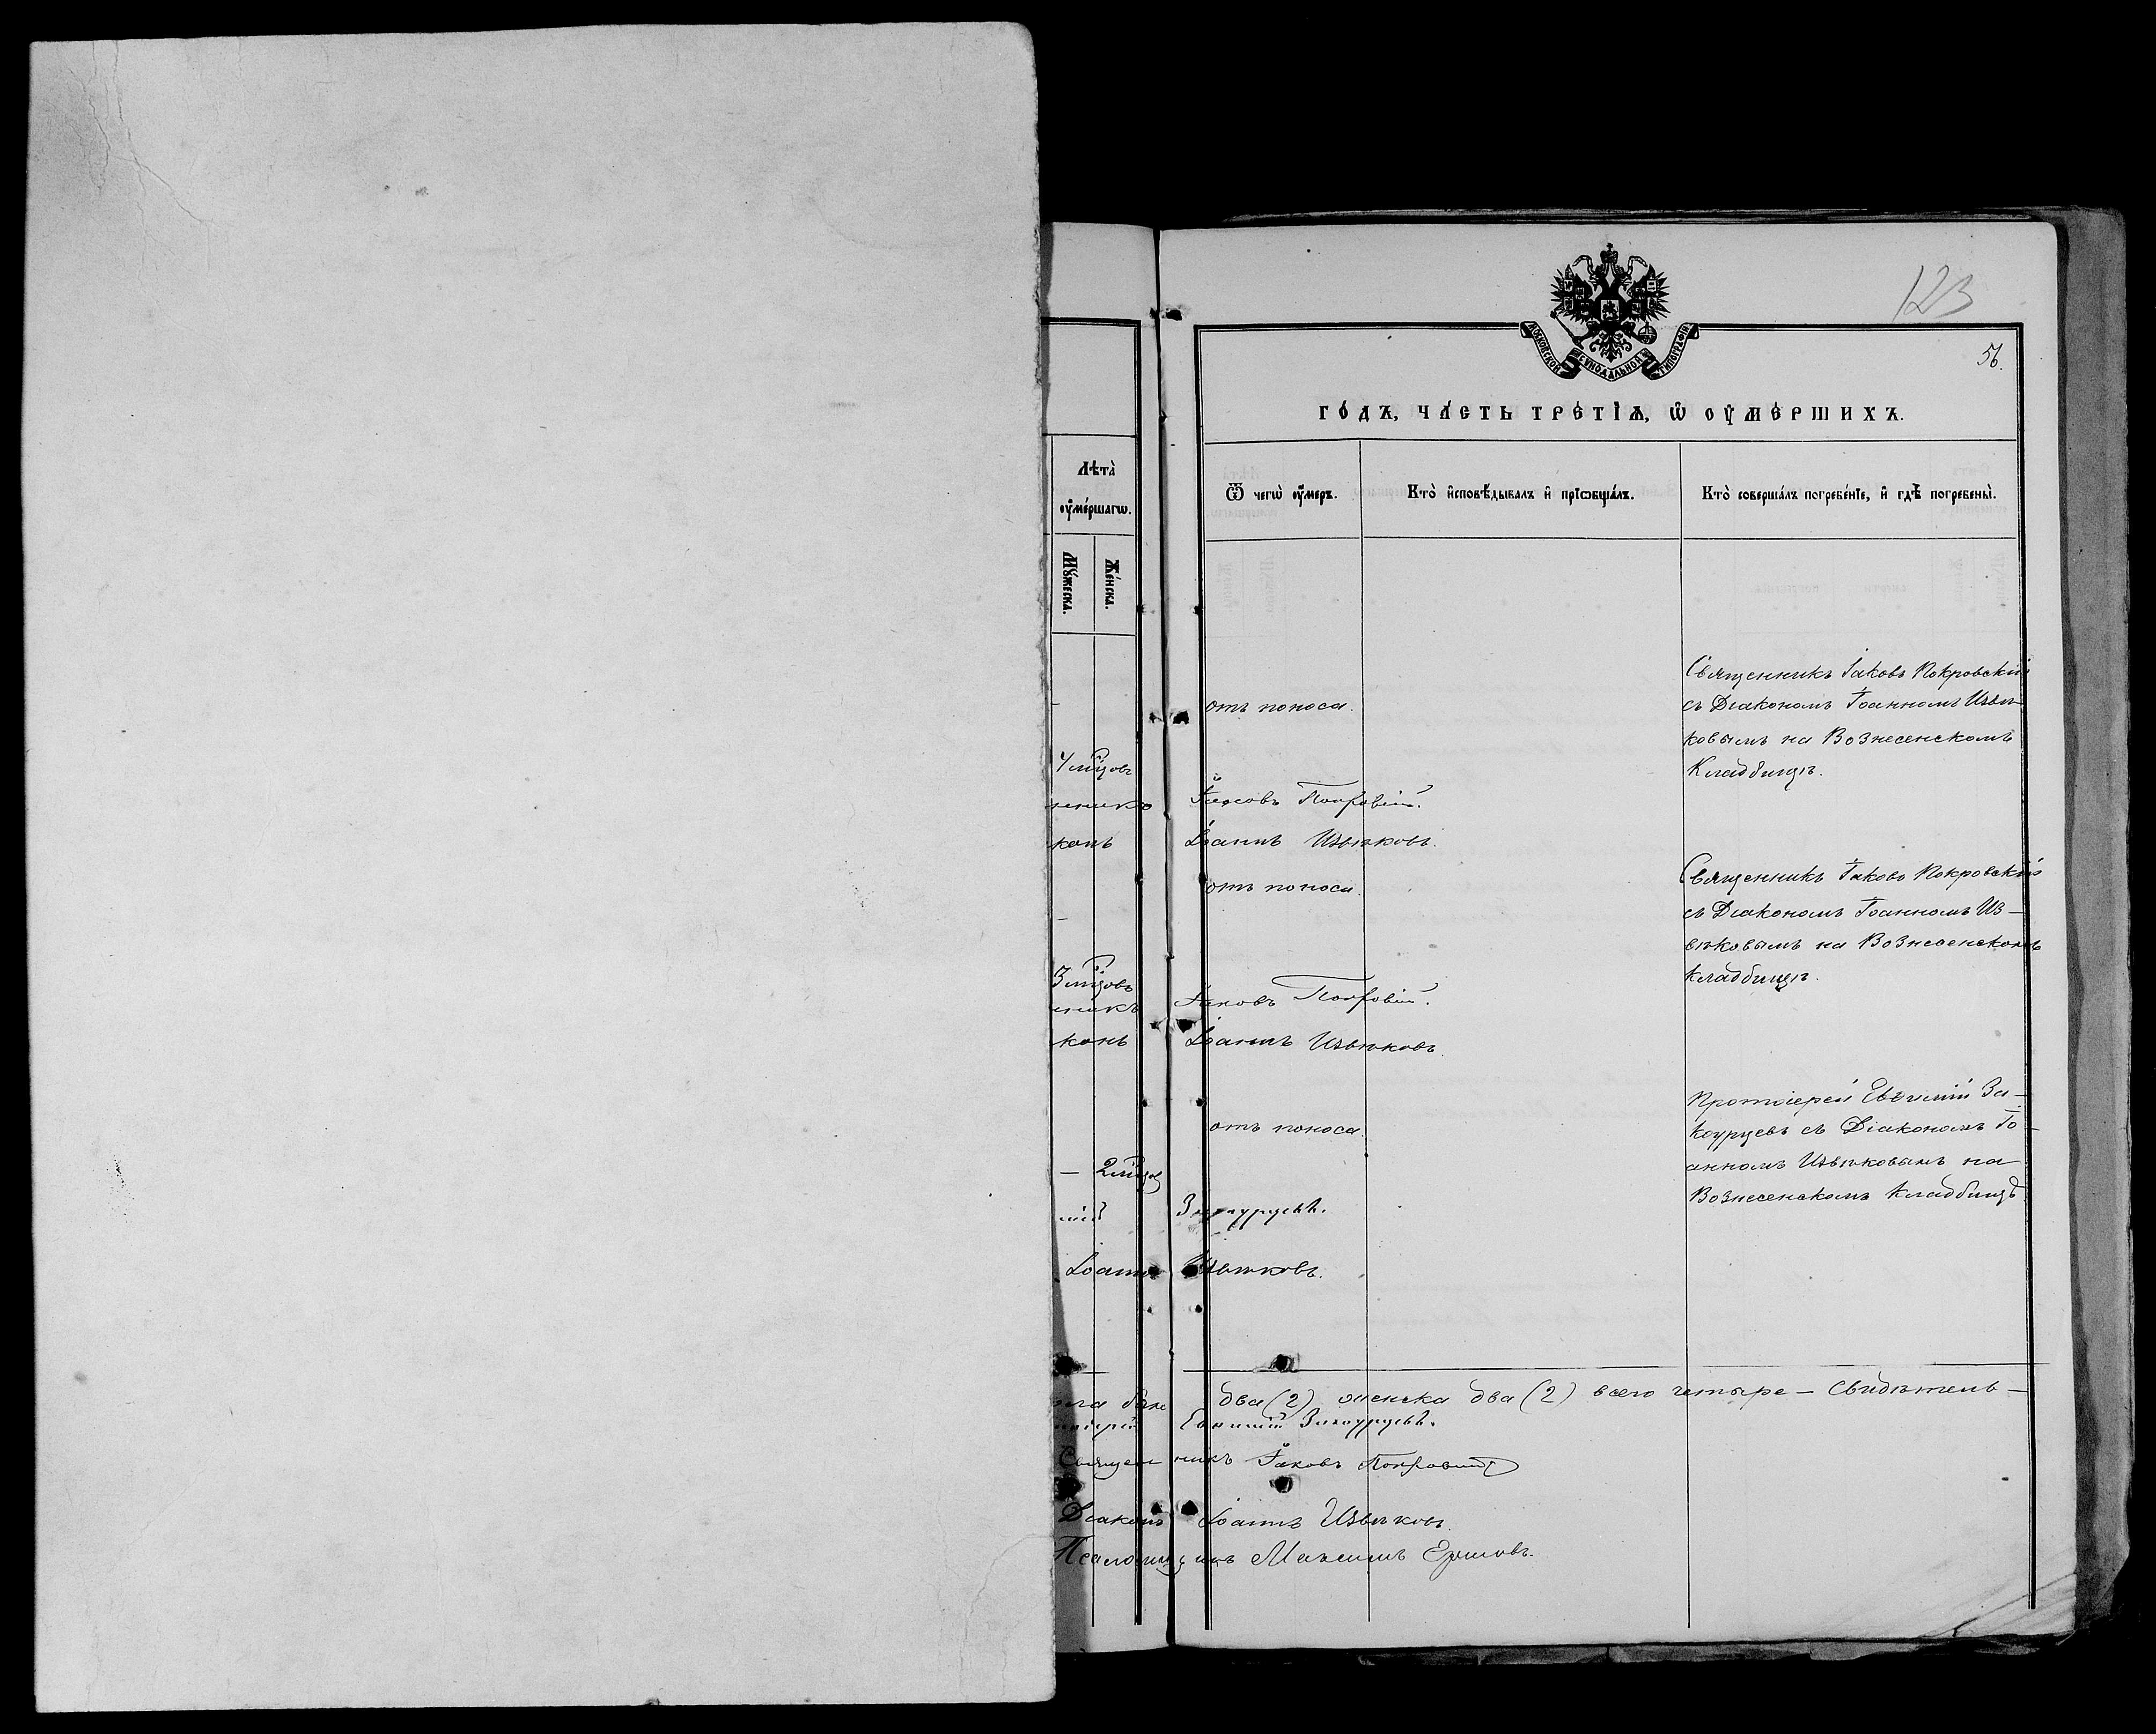 123
56.
МОСКОВСКОЙ СѴНОДАЛЬНОЙ ТИПОГРАФІИ
ГО́ДЪ, ЧА́СТЬ ТРЕ́ТІѦ, Ѡ҆ ОУ҆МЕ́РШИХЪ.
Лѣта̀ оу҆ме́ршагѡ.
Мꙋ́жеска.
Же́нска.
Ѿ чегѡ̀ оу҆́меръ.
Кто̀ и҆сповѣ́дывалъ и҆ прїѡбща́лъ.
Кто̀ соверша́лъ погребе́нїе, и҆ гдѣ̀ погребены̀.
Священникъ Іаковъ Покровскій
отъ поноса.
съ Діакономъ Іоанномъ Извѣ
ковымъ на Вознесенскомъ
4 мцовъ
Кладбищѣ.
Іаковъ Покровскій.
конъ Іоаннъ Извѣковъ.
Священникъ Іаковъ Покровскій
отъ поноса.
съ Діакономъ Іоанномъ Из-
вѣковымъ на Вознесенскомъ
3 мцовъ
Кладбищѣ.
никъ Іаковъ Покровскій.
конъ Іоаннъ Извѣковъ.
Протоіерей Евѳимій За-
отъ поноса.
коурцевъ съ Діакономъ Іо-
– 2 мцов
анномъ Извѣковымъ на
Вознесенскомъ кладбищѣ
мій Закоурцевъ.
Іоаннъ Извѣковъ.
пола два (2) женска два (2) всего четыре – Свидѣтель-
Евѳимій Закоурцевъ.
Священникъ Іаковъ Покровскій
Діаконъ Іоаннъ Извѣковъ.
Псаломщикъ Максимъ Ершовъ.